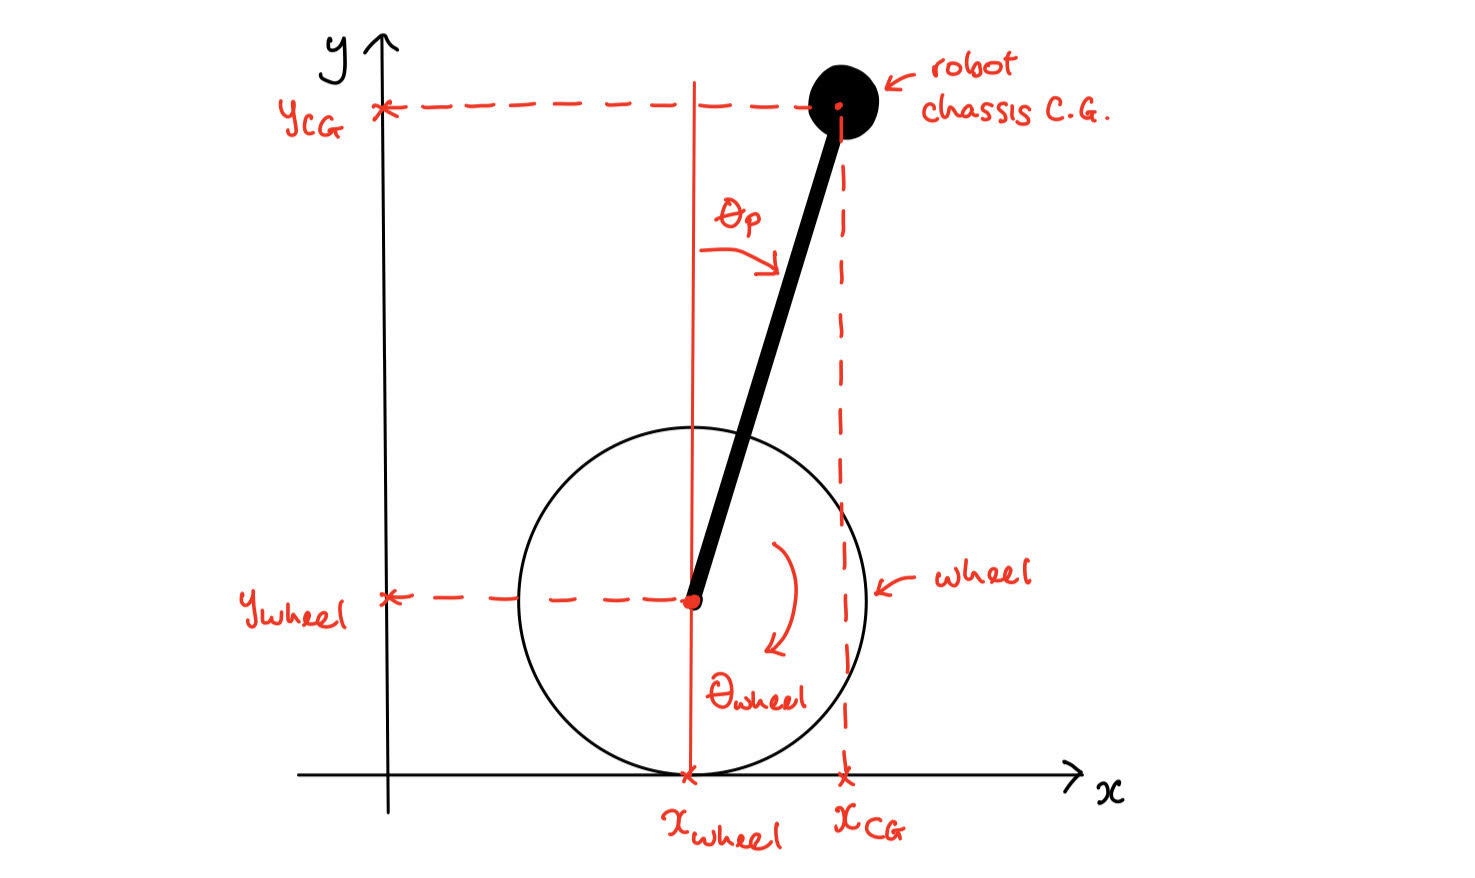 y
yCG
robot
chassis C.G.
θp
wheel
ywheel
θwheel
x
xwheel
xCG